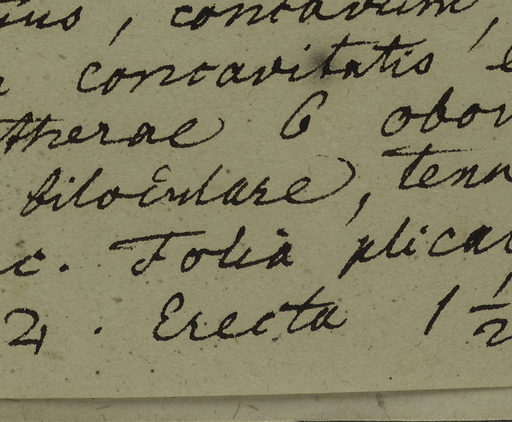 ius, concavum,
concavitatis
therae 6 obov
biloculare, tenu
c. Folia plica
24. Erecta 1 1/2